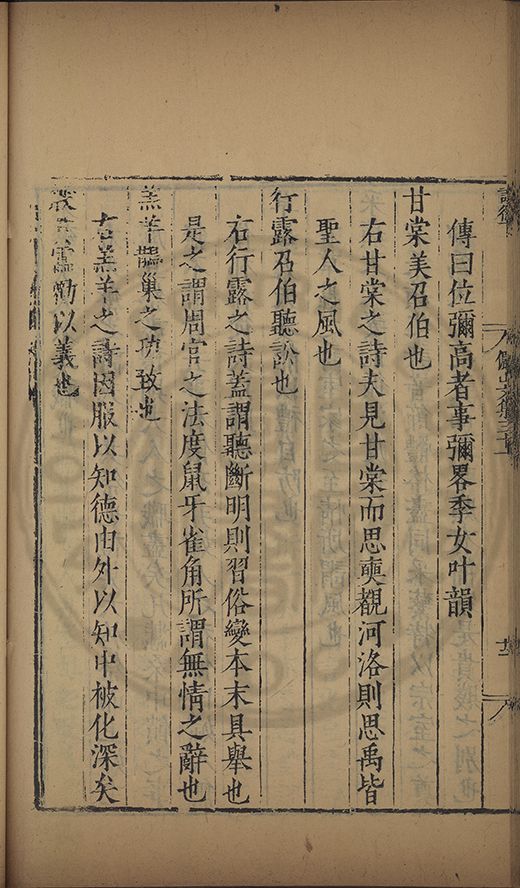 傳曰位彌高者事彌畧季女叶韻
甘棠美召伯也
右甘棠之詩夫見甘棠而思奭觀河洛則思禹皆
聖人之風也
行露召伯聽訟也
右行露之詩蓋謂聽斷明則習俗變本末具舉也
是之謂周官之法度鼠牙雀角所謂無情之辭也
羔羊鵲巢之功致也
右羔羊之詩因服以知德由外以知中被化深矣
殷其靁勸以義也